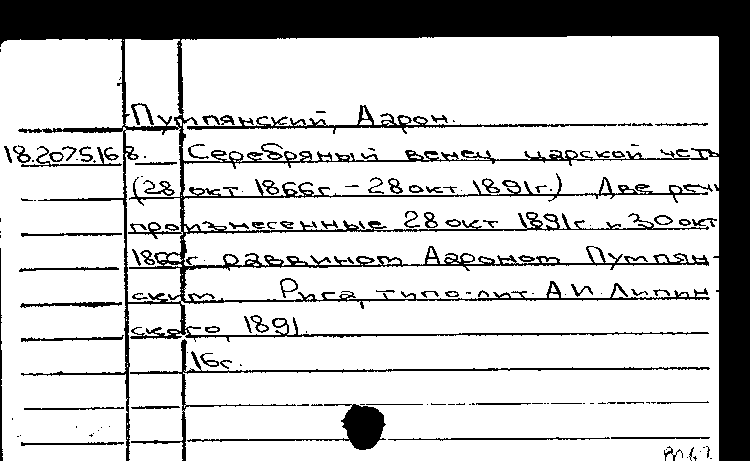 Пумпянский, Аарон.
18.2075.168. Серебряный венец царской четы
(28 окт 1866г. - 28 окт 1891г.) Две речи
произнесенные 28 окт 1891г и 30 окт
1866г раввином Аароном Пумпян-
ским. Рига, типо-лит. А.И. Липин-
ского, 1891.
16с.